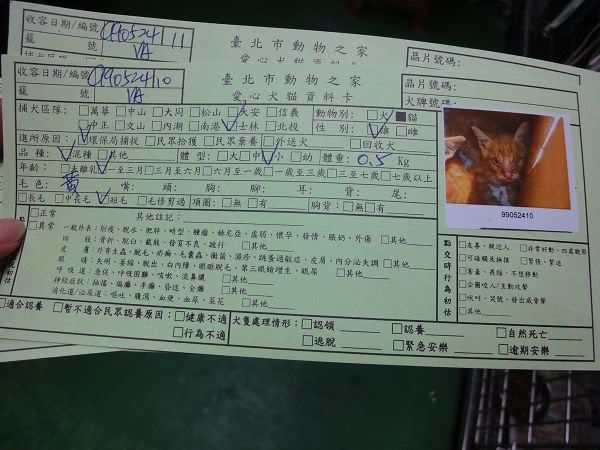 收容日期/編號 990524 11
籠 號 VA
臺北市動物之家
愛心犬貓資料卡
晶片號碼:
收容日期/編號 990524 10
籠 號 VA
臺北市動物之家
愛心犬貓資料卡
晶片號碼:
犬牌號碼:
捕犬區隊: □萬華 □中山 □大同 □松山 □大安 □信義
□中正 □文山 □內湖 □南港 ☑士林 □北投
動物別: □犬 ■貓
性 別: ☑雄 □雌
進所原因: ☑環保局捕捉 □民眾拾獲 □民眾棄養 □外送犬 □回收犬
品 種: ☑混種 □其他 體 型: □大 □中 ☑小 □幼 體重: 0.5 Kg
年齡: □未離乳 ☑一至三月 □三月至六月 □六月至一歲 □一至三歲 □三至七歲 □七歲以上
毛色: 黃 嘴: 頭: 胸: 腳: 耳: 背: 尾:
□長毛 □中長毛 ☑短毛 □毛修剪過 項圈: □無 □有 胸背: □無 □有
99052410
□正常 其他註記:
□異常 一般外表: 削瘦、脫水、肥胖、畸型、腫瘤、赫尼亞、虛弱、懷孕、發情、脹奶、外傷 □其他
四 肢: 骨折、脫臼、截肢、發育不良、跛行 □其他
皮 膚: 外寄生蟲、脫毛、疥癬、毛囊蟲、黴菌、濕疹、跳蚤過敏症、痘瘡、內分泌失調 □其他
眼 睛: 失明、萎縮、脫出、白內障、眼瞼脫毛、第三眼瞼增生、眼屎 □其他
呼 吸 道: 急促、呼吸困難、咳嗽、流鼻膿 □其他
神經症狀: 抽搐、偏癱、半癱、昏迷、全癱 □其他
消化道/泌尿道: 嘔吐、腹瀉、血便、血尿、菜花 □其他
點交時行為初估
□友善、親近人 □非常好動、四處觀察
□可碰觸及撫摸 □緊張、緊迫
□害羞、畏縮、不想移動
□企圖咬人/主動攻擊
□吠叫、哭號、發出威脅聲
□其他
□適合認養 □暫不適合民眾認養原因: □健康不適
□行為不適
犬隻處理情形: □認領 □認養 □自然死亡
□逃脫 □緊急安樂 □逾期安樂